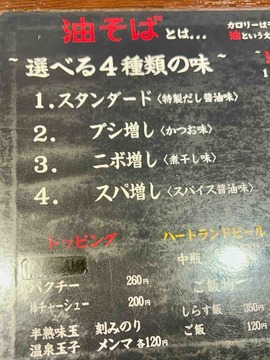 油そばとは...
カロリーは
油という
~選べる4種類の味~
1.スタンダード〈特製だし醤油味〉
2. ブシ増し〈かつお味〉
3. ニボ増し〈煮干し味〉
4. スパ増し〈スパイス醤油味〉
トッピング
ハートランドビール
中瓶
パクチー 260円
チャーシュー 200円
しらす飯 350円
半熟味玉 刻みのり
ご飯 120円
温泉玉子 メンマ 各120円